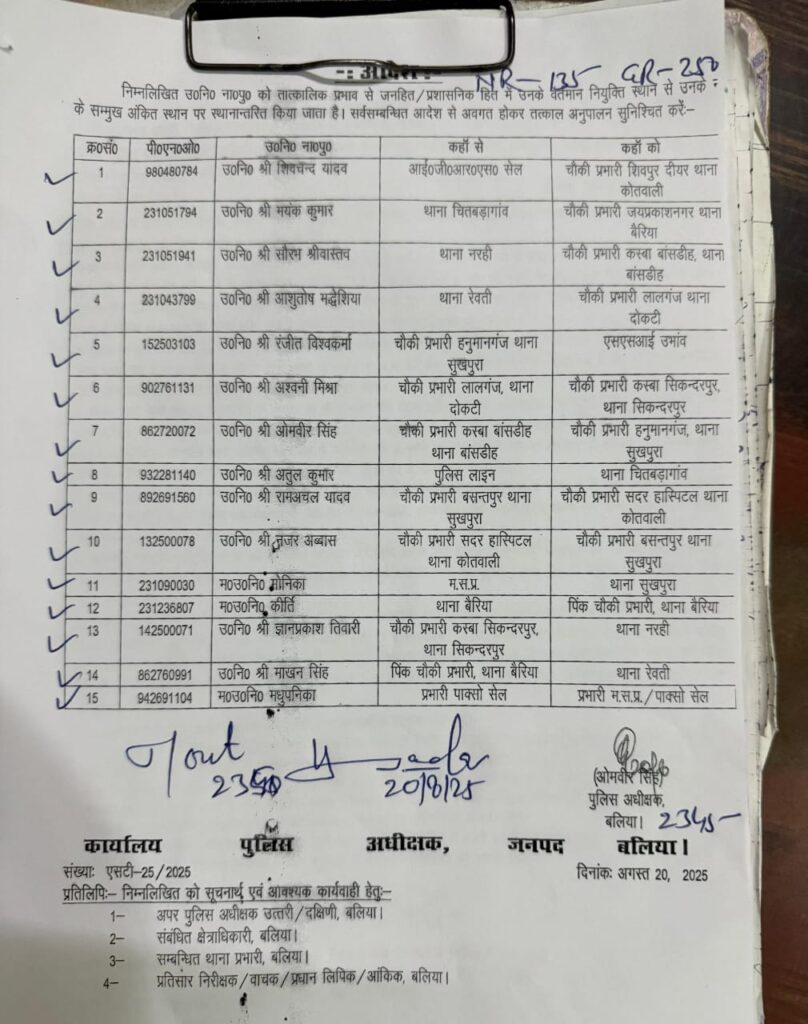 -: आदेश :-
NR - 135 GR - 250
निम्नलिखित उ०नि० ना०पु० को तात्कालिक प्रभाव से जनहित/प्रशासनिक हित में उनके वर्तमान नियुक्ति स्थान से उनके
के सम्मुख अंकित स्थान पर स्थानान्तरित किया जाता है। सर्वसम्बन्धित आदेश से अवगत होकर तत्काल अनुपालन सुनिश्चित करें:-
क्र०सं० पी०एन०ओ० उ०नि० ना०पु० कहाँ से कहाँ को
1 980480784 उ०नि० श्री शिवचन्द यादव आई०जी०आर०एस० सेल चौकी प्रभारी शिवपुर दीयर थाना
कोतवाली
2 231051794 उ०नि० श्री मयंक कुमार थाना चितबड़ागांव चौकी प्रभारी जयप्रकाशनगर थाना
बैरिया
3 231051941 उ०नि० श्री सौरभ श्रीवास्तव थाना नरही चौकी प्रभारी कस्बा बांसडीह, थाना
बांसडीह
4 231043799 उ०नि० श्री आशुतोष मद्धेशिया थाना रेवती चौकी प्रभारी लालगंज थाना
दोकटी
5 152503103 उ०नि० श्री रंजीत विश्वकर्मा चौकी प्रभारी हनुमानगंज थाना एसएसआई उभांव
सुखपुरा
6 902761131 उ०नि० श्री अश्वनी मिश्रा चौकी प्रभारी लालगंज, थाना चौकी प्रभारी कस्बा सिकन्दरपुर,
दोकटी थाना सिकन्दरपुर
7 862720072 उ०नि० श्री ओमवीर सिंह चौकी प्रभारी कस्बा बांसडीह चौकी प्रभारी हनुमानगंज, थाना
थाना बांसडीह सुखपुरा
8 932281140 उ०नि० श्री अतुल कुमार पुलिस लाइन थाना चितबड़ागांव
9 892691560 उ०नि० श्री रामअचल यादव चौकी प्रभारी बसन्तपुर थाना चौकी प्रभारी सदर हास्पिटल थाना
सुखपुरा कोतवाली
10 132500078 उ०नि० श्री नजर अब्बास चौकी प्रभारी सदर हास्पिटल चौकी प्रभारी बसन्तपुर थाना
थाना कोतवाली सुखपुरा
11 231090030 म०उ०नि० मोनिका म.स.प्र. थाना सुखपुरा
12 231236807 म०उ०नि० कीर्ति थाना बैरिया पिंक चौकी प्रभारी, थाना बैरिया
13 142500071 उ०नि० श्री ज्ञानप्रकाश तिवारी चौकी प्रभारी कस्बा सिकन्दरपुर, थाना नरही
थाना सिकन्दरपुर
14 862760991 उ०नि० श्री माखन सिंह पिंक चौकी प्रभारी, थाना बैरिया थाना रेवती
15 942691104 म०उ०नि० मधुपनिका प्रभारी पाक्सो सेल प्रभारी म.स.प्र./पाक्सो सेल
20/8/25
(ओमवीर सिंह)
पुलिस अधीक्षक,
बलिया। 2345-
कार्यालय पुलिस अधीक्षक, जनपद बलिया।
संख्याः एसटी-25/2025 दिनांकः अगस्त 20, 2025
प्रतिलिपिः- निम्नलिखित को सूचनार्थ एवं आवश्यक कार्यवाही हेतुः-
1- अपर पुलिस अधीक्षक उत्तरी/दक्षिणी, बलिया।
2- संबंधित क्षेत्राधिकारी, बलिया।
3- सम्बन्धित थाना प्रभारी, बलिया।
4- प्रतिसार निरीक्षक/वाचक/प्रधान लिपिक/आंकिक, बलिया।